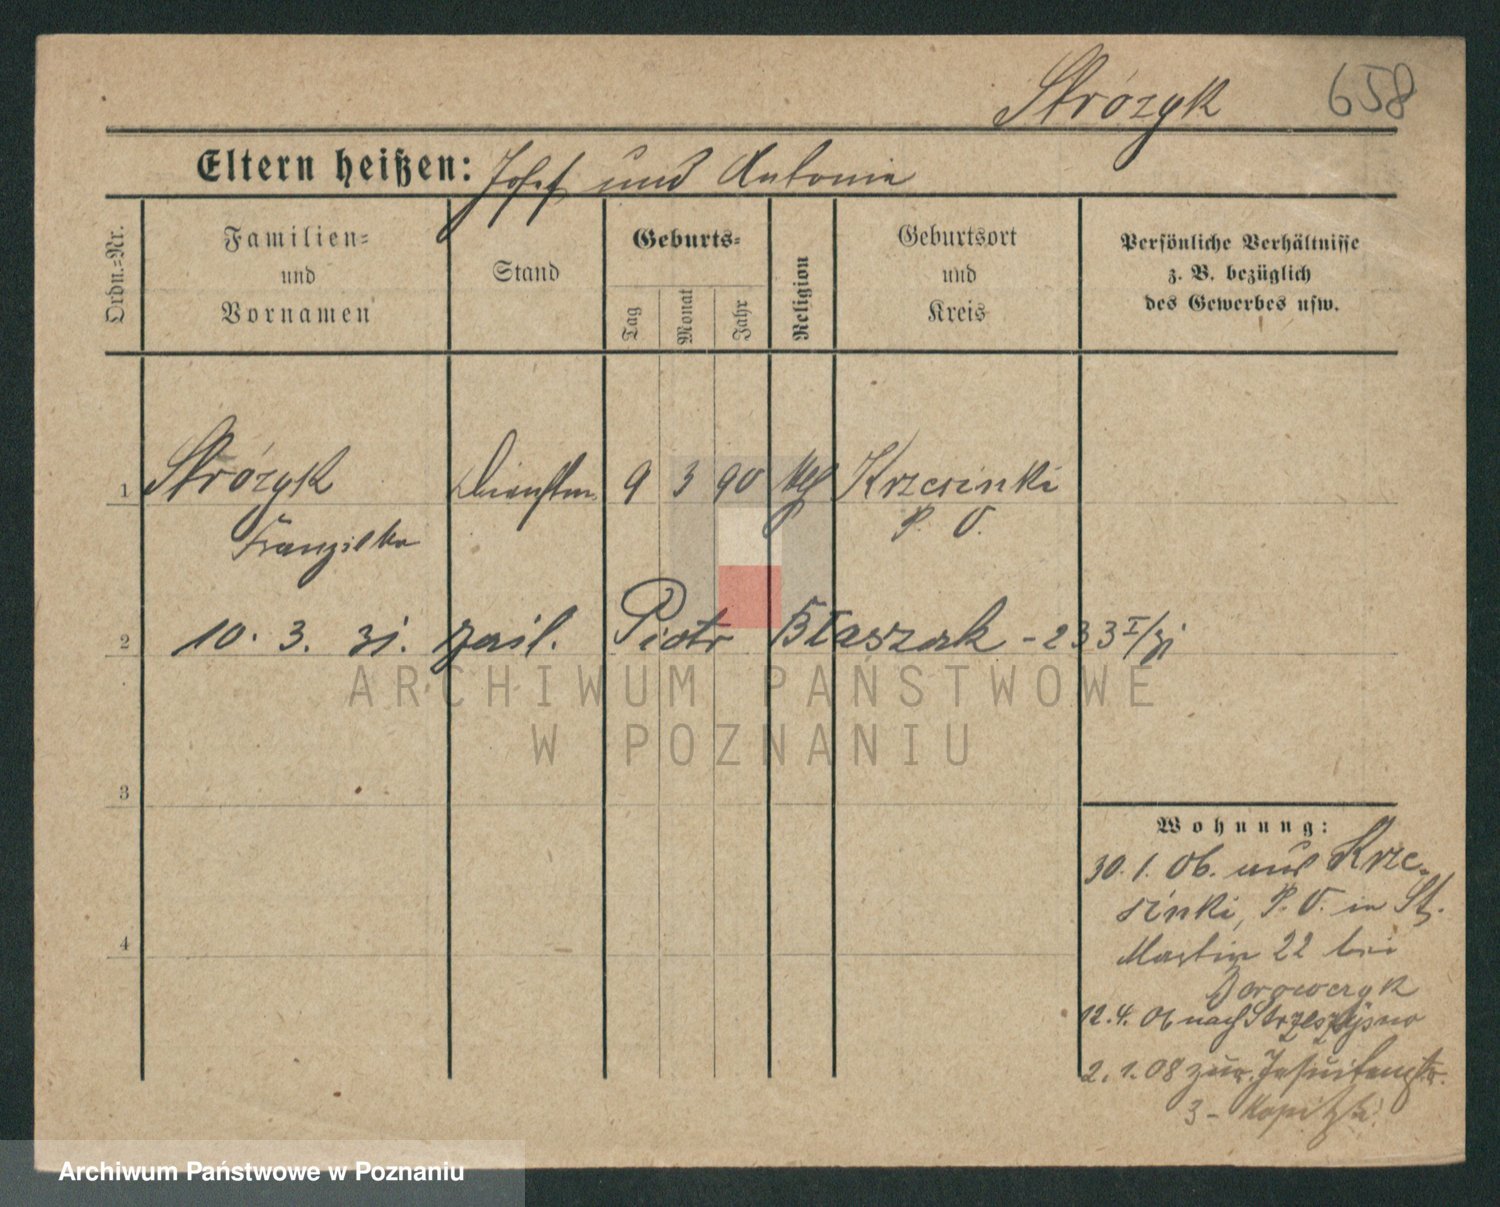 Strózyk 658
Eltern heißen: Josef und Antonie
Ordn.-Nr.
Familien-
und
Vornamen
Stand
Geburts-
Tag
Monat
Jahr
Religion
Geburtsort
und
Kreis
Persönliche Verhältnisse
z. B. bezüglich
des Gewerbes usw.
1 Strózyk Dienstm. 9 3 90 kth Krzesinki
Franziska P. O.
2 10. 3. 31. zasl. Piotr Błaszak - 233 I/31
ARCHIWUM PAŃSTWOWE
W POZNANIU
3
Wohnung:
30. 1. 06. aus Krze-
sinki, P. O. in St.
4
Martin 22 bei
Borowczyk
12. 4. 06 nach
2. 1. 08 zur. Jesuitenstr.
3 -
Archiwum Państwowe w Poznaniu